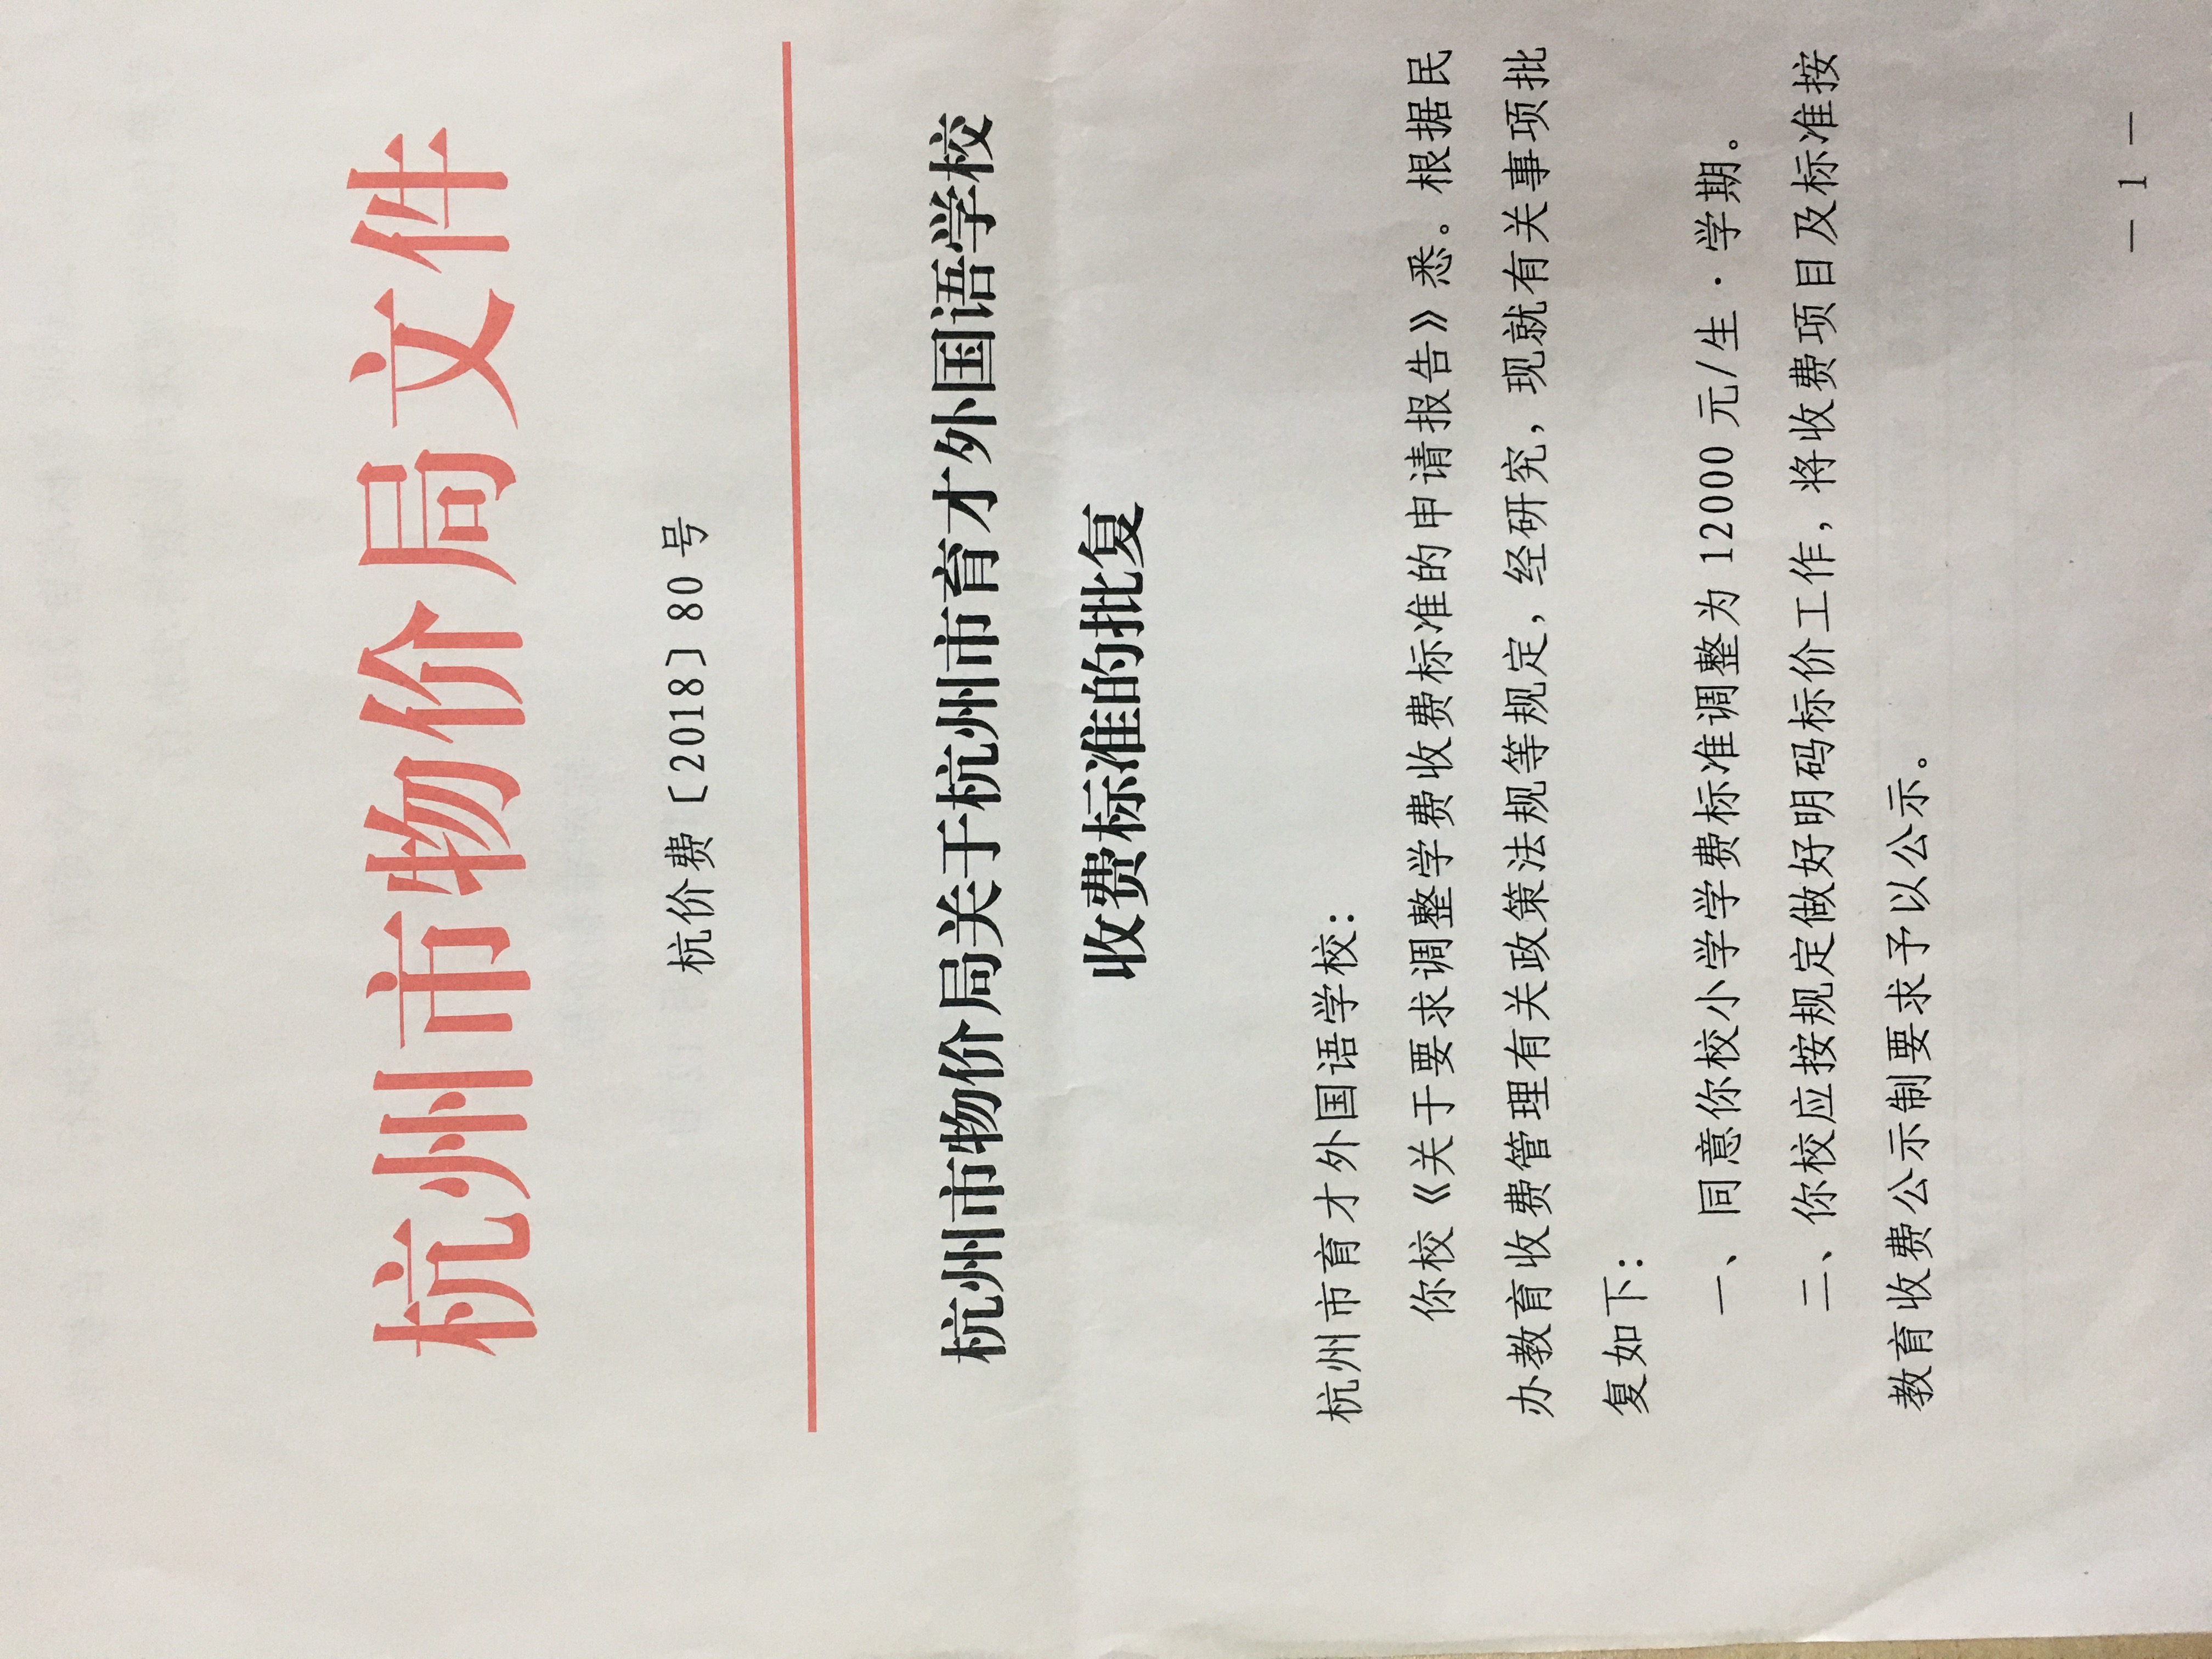 杭州市物价局文件
杭价费〔2018〕80号
杭州市物价局关于杭州市育才外国语学校
收费标准的批复
杭州市育才外国语学校：
你校《关于要求调整学费收费标准的申请报告》悉。根据民
办教育收费管理有关政策法规等规定，经研究，现就有关事项批
复如下：
一、同意你校小学学费标准调整为12000元/生·学期。
二、你校应按规定做好明码标价工作，将收费项目及标准按
教育收费公示制要求予以公示。
— 1 —